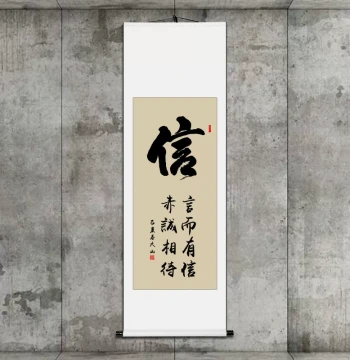 信
言而有信
赤誠相待